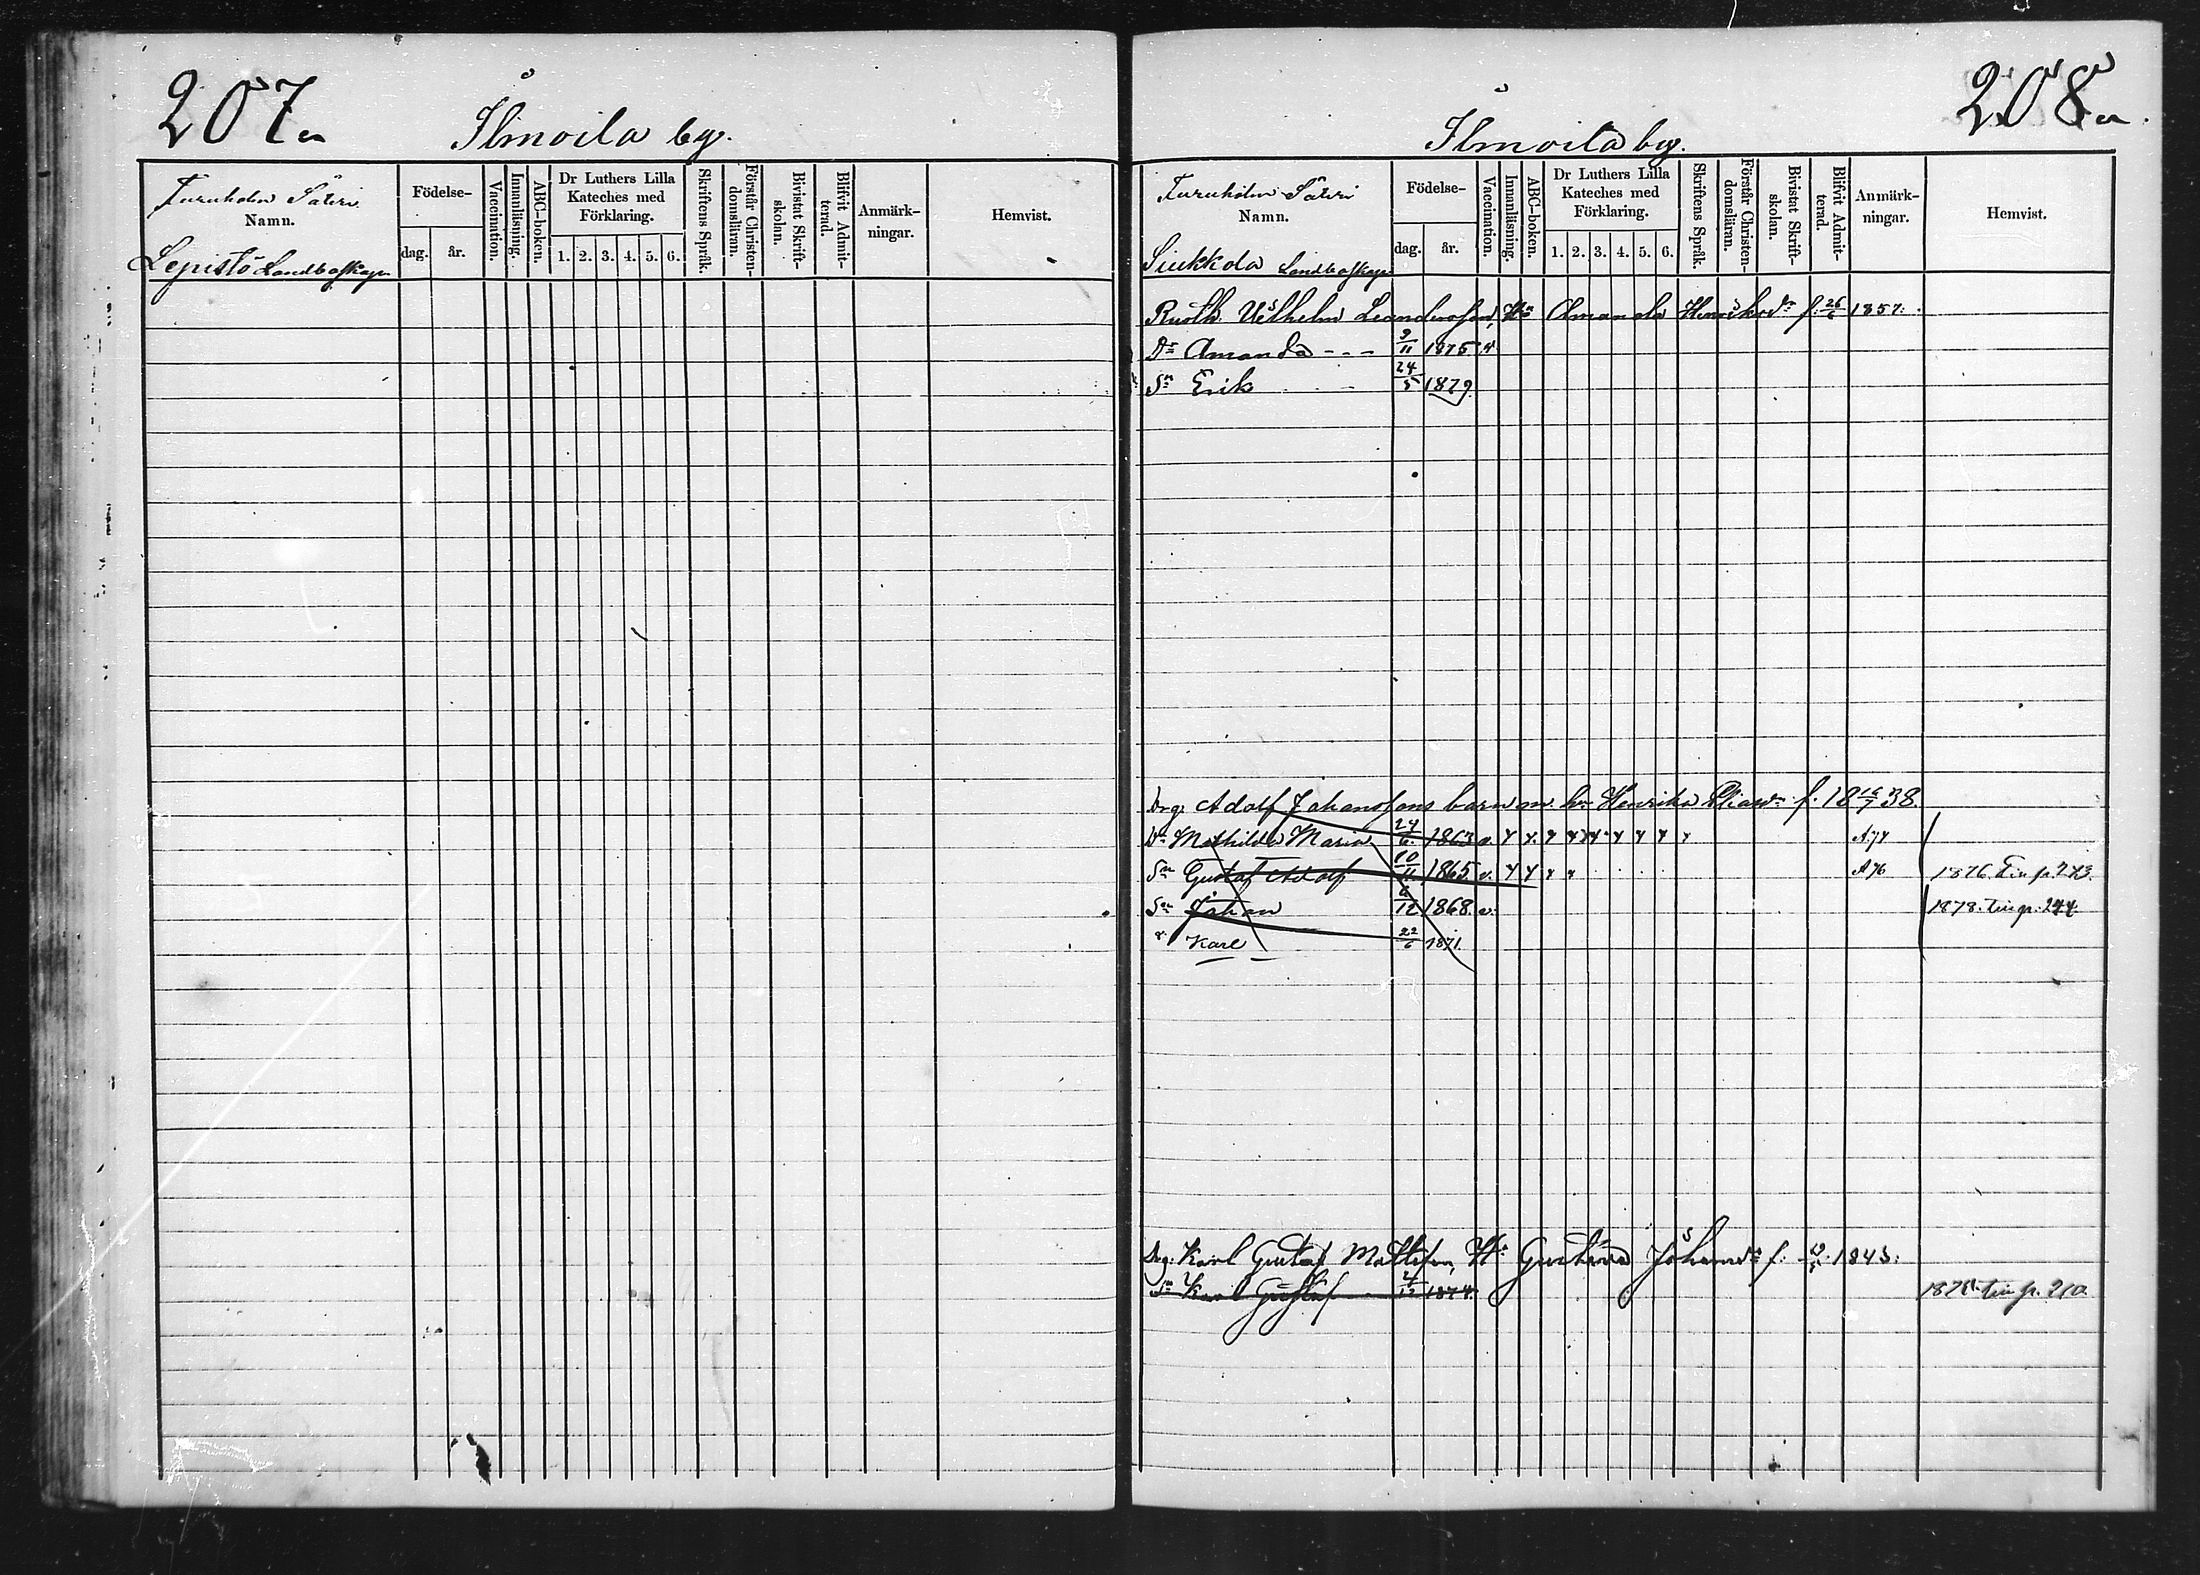 207a
Ilmoila by.
Turuholm Säteri
Namn.
Lepistö Landbolägen
Födelse-
dag. år.
Vaccination.
Innanläsning.
ABC-boken.
Dr Luthers Lilla
Kateches med
Förklaring.
1. 2. 3. 4. 5. 6.
Skriftens Språk.
Förstår Christen-
domsläran.
Bivistat Skrift-
skolan.
Blifvit Admit-
terad.
Anmärk-
ningar.
Hemvist.
208a.
Ilmoila by.
Turuholm Säteri
Namn.
Siukkola
Födelse-
dag. år.
Vaccination.
Innanläsning.
ABC-boken.
Dr Luthers Lilla
Kateches med
Förklaring.
1. 2. 3. 4. 5. 6.
Skriftens Språk.
Förstår Christen-
domsläran.
Bivistat Skrift-
skolan.
Blifvit Admit-
terad.
Anmärk-
ningar.
Hemvist.
Vilhelm Leandersson, Hu Amanda Henriksdr f. 26/6 1857.
Dr Amanda - - - 9/11 1875 v
Sn Erik 24/5 1879
Drg. Adolf Johanssons barn m. hu Henrika Eliasdr f. 18 16/7 38.
Dr Mathilda Maria 24/6 1863 v. A74
Sn Gustaf Adolf 10/11 1865 v. A76 1876. Tin p. 243.
Sn Johan 6/12 1868. v. 1878. tin p. 244.
Karl 22/6 1871.
Drg. Karl Gustaf Mattsson, Hu Gustava Johansdr f. 1843.
Sn Karl Gustaf 4/12 1874. tin p. 210